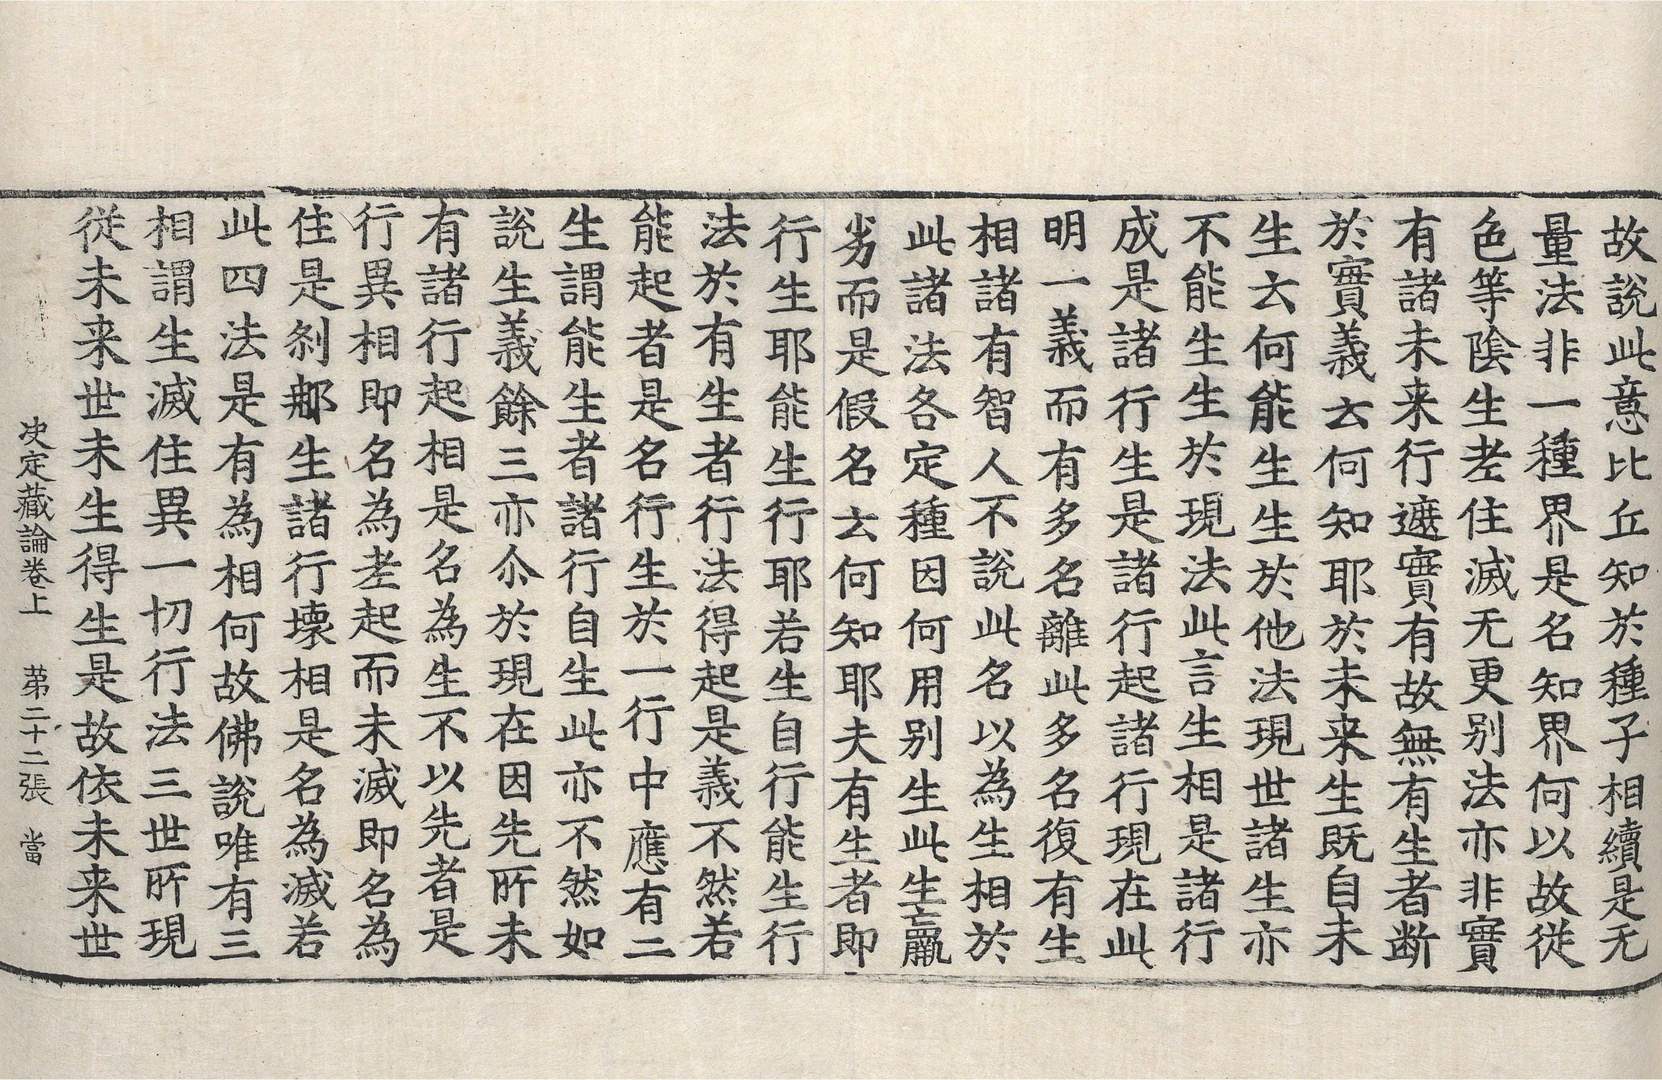 故說此意比丘知於種子相續是无
量法非一種界是名知界何以故從
色等陰生老住滅无更别法亦非實
有諸未来行遮實有故無有生者断
於實義云何知耶於未来生既自未
生云何能生生於他法現世諸生亦
不能生生於現法此言生相是諸行
成是諸行生是諸行起諸行現在此
明一義而有多名離此多名復有生
相諸有智人不說此名以為生相於
此諸法各定種因何用别生此生羸
劣而是假名云何知耶夫有生者即
行生耶能生行耶若生自行能生行
法於有生者行法得起是義不然若
能起者是名行生於一行中應有二
生謂能生者諸行自生此亦不然如
說生義餘三亦尒於現在因先所未
有諸行起相是名為生不以先者是
行異相即名為老起而未滅即名為
住是刹那生諸行壞相是名為滅若
此四法是有為相何故佛說唯有三
相謂生滅住異一切行法三世所現
從未来世未生得生是故依未来世
决定藏論卷上 苐二十二張 當